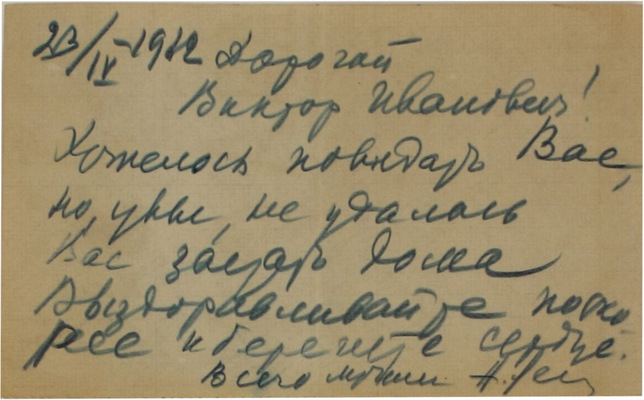 23/IV-1912 Дорогой
Виктор Иванович!
Хотелось повидать Вас,
но, увы, не удалось
Вас застать дома
Выздоравливайте поско
рее и берегите сердце.
Всего